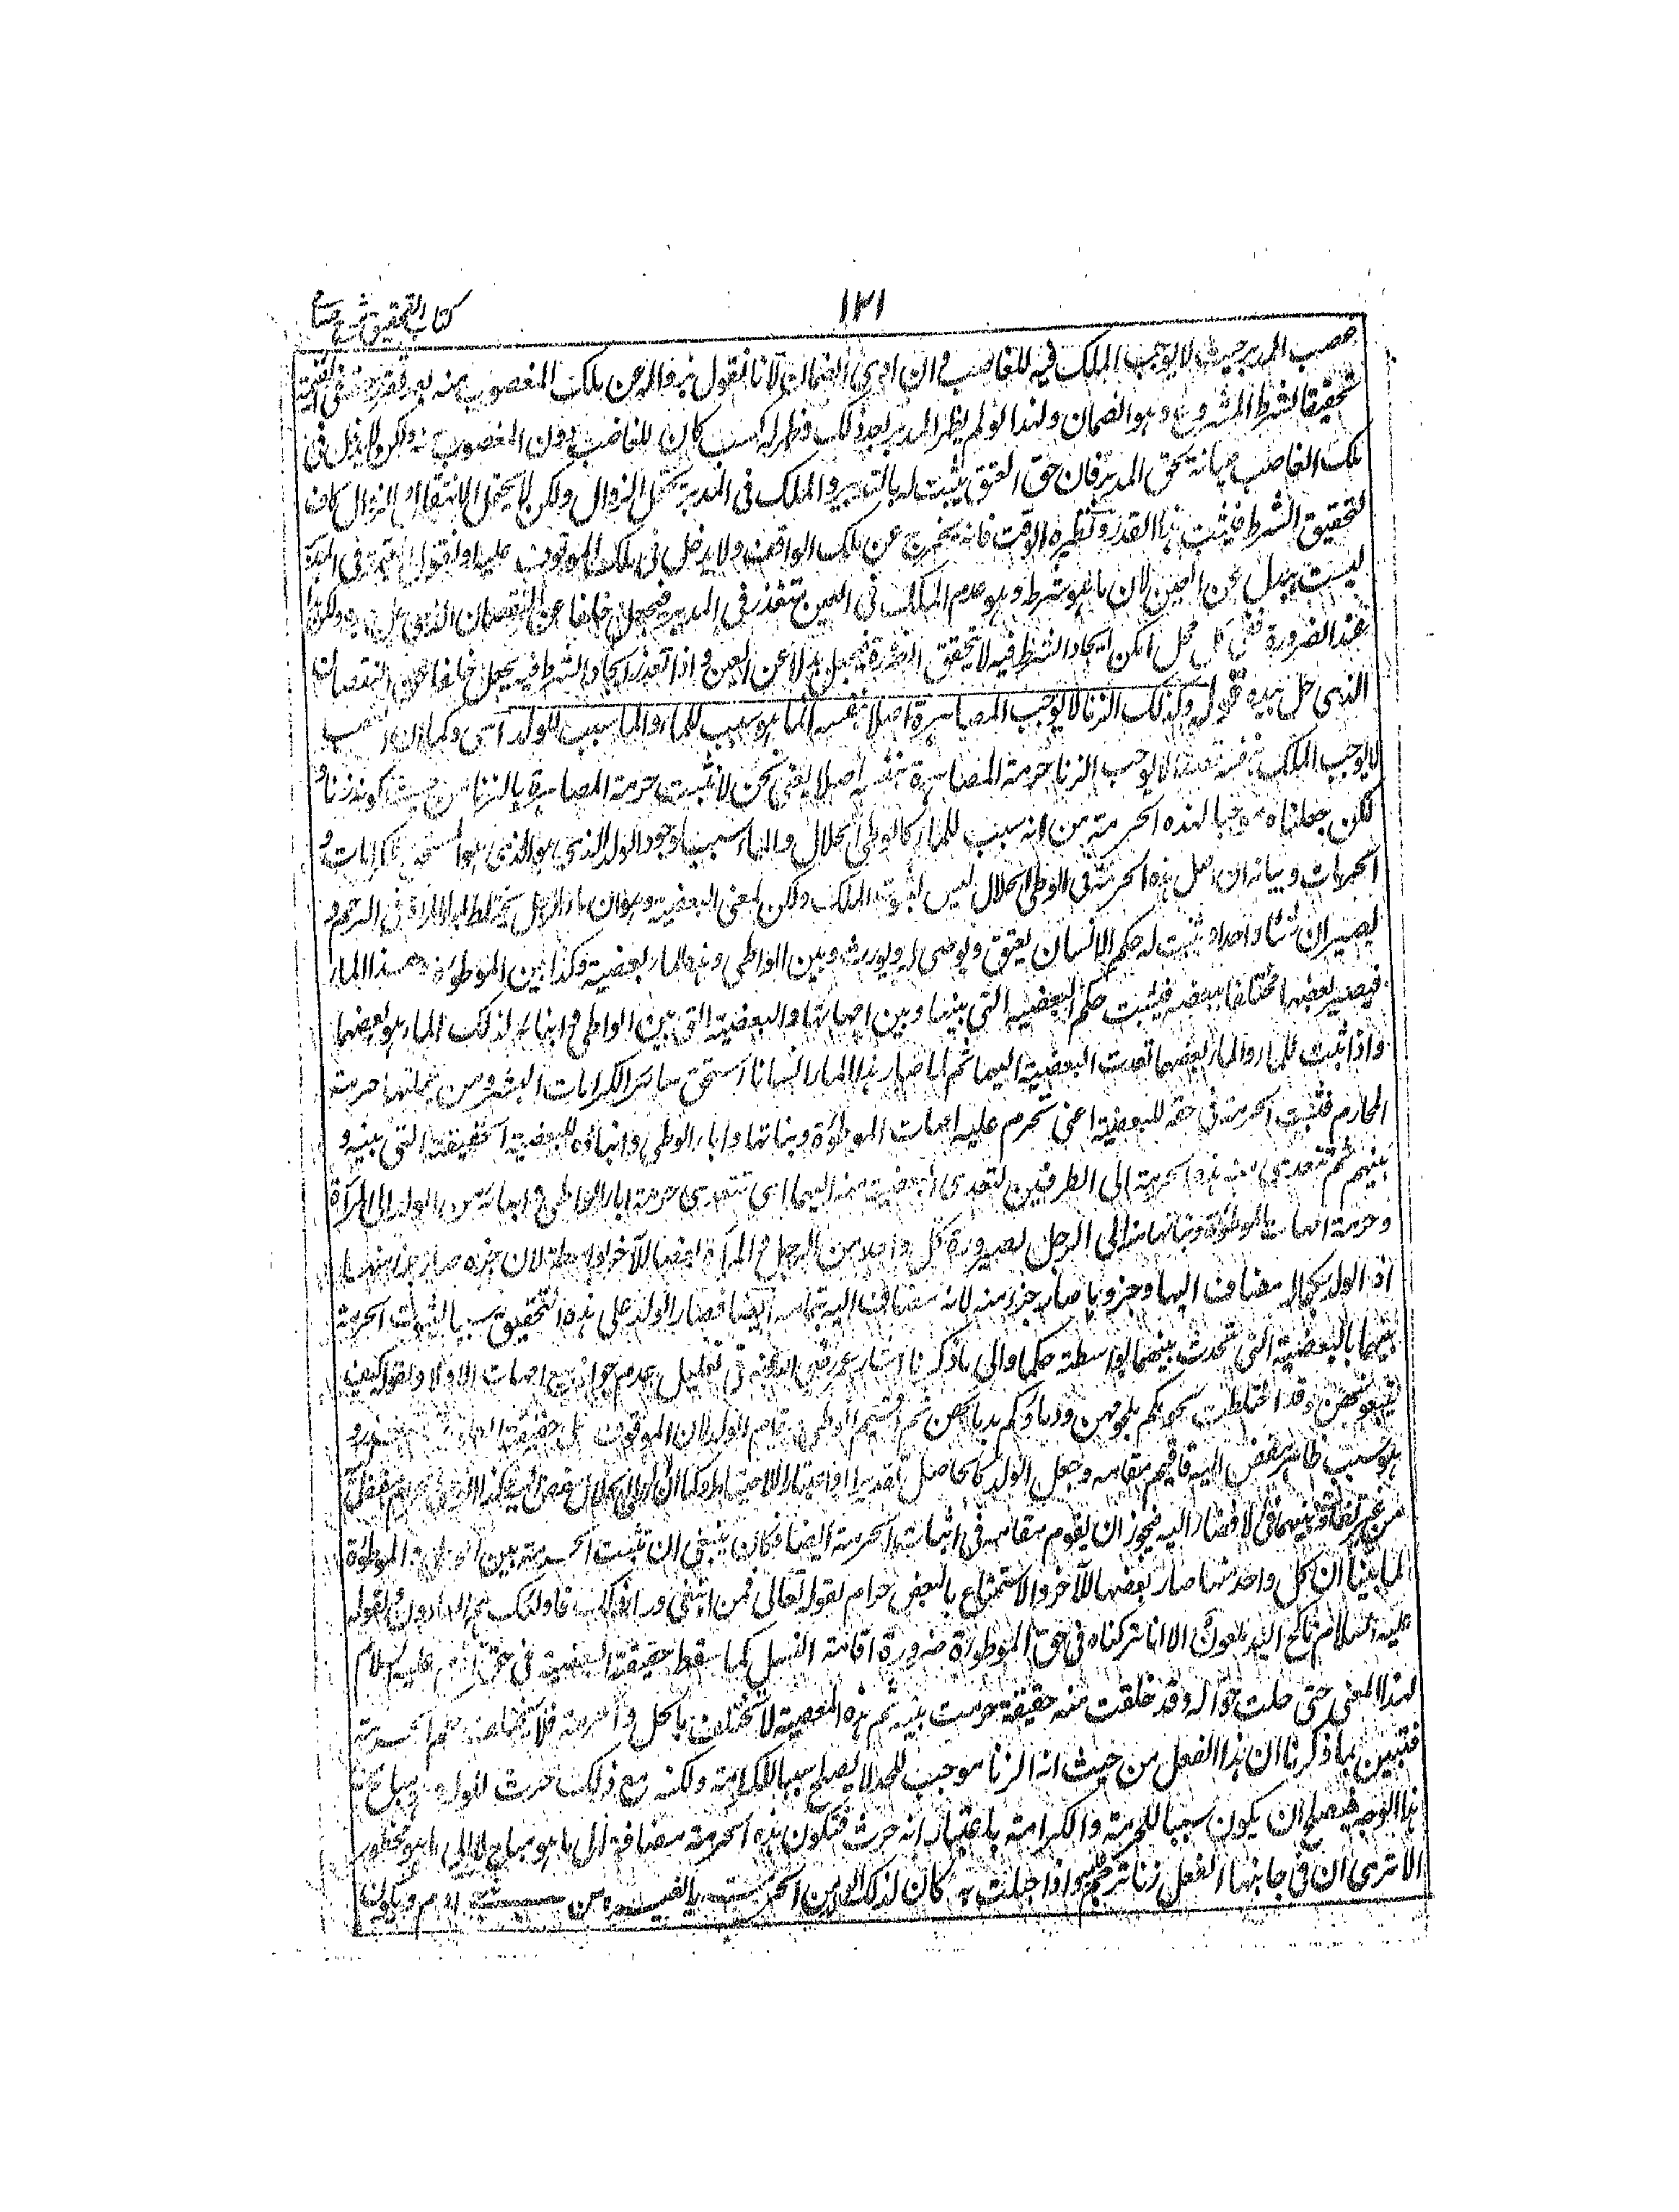 ١٢١
كتاب التحقيق شرح حسامي
غصب المدبر حيث لا يوجب الملك فيه للغاصب وان ادى الضمان لانا نقول يزول المدبر عن ملك المغصوب منه بعد تقرر حقه في القيمة
تحقيقا لشرط المشروع وهو الضمان ولهذا لو لم يظهر المدبر بعد ذلك وظهر له كسب كان للغاصب دون المغصوب منه ولكن لا يدخل في
ملك الغاصب صيانة لحق المدبر فان حق العتق يثبت له بالتدبير والملك في المدبر يحتمل الزوال ولكن لا يحتمل الانتقال الزوال كاف
لتحقيق الشرط فيثبت هذا القدر ونظيره الوقف فانه يخرج عن ملك الواقف ولا يدخل في ملك الموقوف عليه او نقول القيمة في المدبر
ليست ببدل عن العين لان ما هو شرطه وهو عدم الملك في العين متعذر في المدبر فيجعل خلفا عن النقصان الذي حل بيده ولكن هذا
عند الضرورة ففي كل محل امكن ايجاد الشرط فيه لا يتحقق الضرورة فيجعل بدلا عن العين واذا تعذر ايجاد الشرط فيه يجعل خلفا عن النقصان
الذي حل بيده قوله وكذلك الزنا لا يوجب المصاهرة اصلا بنفسه انما هو سبب للماء والماء سبب للولد اى وكما ان الغصب
لا يوجب الملك بنفسه لا يوجب الزنا حرمة المصاهرة بنفسه اصلا يعني نحن لا نثبت حرمة المصاهرة بالزنا من حيث كونه زنا و
لكن جعلناه موجبا لهذه الحرمة من انه سبب للماء كالوطي الحلال والماء سبب لوجود الولد الذي هو المستحق للكرامات و
الحرمات وبيانه ان اصل هذه الحرمة في الوطي الحلال ليس لثبوت الملك ولكن لمعنى البعضية وهو ان ماء الرجل يختلط بماء المرأة في الرحم و
يصيران شيئا واحدا ويثبت له حكم الانسان يعتق ويوصى له ويورث وبين الواطي وهذا الماء بعضية وكذا بين الموطوءة وهذا الماء
فيصير بعضها مختلطا ببعضه فيثبت حكم البعضية التي بينها وبين امهاتها والبعضية التي بين الواطي وابنائه لذلك الماء هو بعضهما
واذا ثبت للماء والماء بعضهما تعدت البعضية اليهما ثم لما صار هذا الماء انسانا استحق سائر الكرامات البشر ومن جملتها حرمة
المحارم فتثبت الحرمة في حقه للبعضية اعنى تحرم عليه امهات الموطوءة وبناتها واباء الوطي وابناؤه للبعضية الحقيقة التي بينه و
بينهم ثم تتعدى منه هذه الحرمة الى الطرفين لتعدى البعضية منه اليهما اى تتعدى حرمة اباء الواطي وابنائه من الولد الى المرأة
وحرمة امهات الموطوءة وبناتها منه الى الرجل بصيرورة كل واحد من الرجل والمرأة بعضا للآخر بواسطة لان جزءه صار جزءا منها
اذ الولد بكماله مضاف اليها وجزءها صار جزءا منه لانه مضاف اليه بتمامه ايضا فصار الولد على هذه التحقيق سببا لثبوت الحرمة
بينهما بالبعضية التي تحدث بينهما بواسطته حكما والى ما ذكرنا اشار عمر رضي الله عنه في تعليل عدم جواز بيع امهات الاولاد بقوله كيف
تبيعوهن وقد اختلطت لحومكم بلحومهن ودماؤكم بدمائهن ثم اقيم الوطي مقام الولد لان الوقوف على حقيقة العلوق متعذر و
هو سبب ظاهر مفض اليه فاقيم مقامه وجعل الولد كالحاصل تقديرا واعتبارا للاحتياط وكما ان الوطي الحلال مفض اليه فكذا الوطي الحرام مفض
من غير تفاوت بينهما في الافضاء اليه فيجوز ان يقوم مقامه في اثبات الحرمة ايضا فكان ينبغي ان تثبت الحرمة بين الواطي والموطوءة
لما بينا ان كل واحد منهما صار بعضها للآخر والاستمتاع بالبعض حرام لقوله تعالى فمن ابتغى وراء ذلك فاولئك هم العادون ولقوله
عليه السلام ناكح اليد ملعون الا انا تركناه في حق الموطوءة ضرورة اقامة النسل كما سقط حقيقة البعضية في حق آدم عليه السلام
لهذا المعنى حتى حلت حوا له وقد خلقت منه حقيقة وحرمت بنته ثم هذه البعضية لا تختلف بالحل والحرمة فلا يختلف حكم الحرمة
فتبين بما ذكرنا ان هذا الفعل من حيث انه الزنا موجب للحد لا يصلح سببا للكرامة ولكنه مع ذلك حرث للولد
هذا الوجه فيصلح ان يكون سببا للحرمة والكرامة باعتبار انه حرث فتكون هذه الحرمة مضافة الى ما هو مباح لا الى ما هو محظور
الا ترى ان في جانبها الفعل زنا ترجم عليه واذا حبلت به كان لذلك الولد من الحرمة من